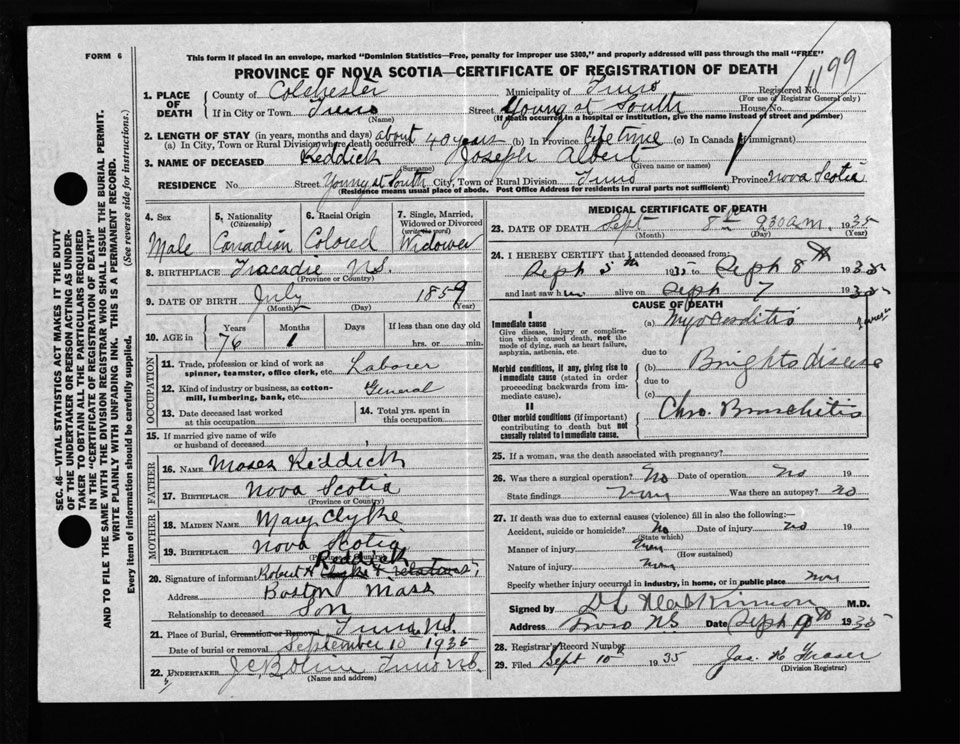 FORM 6
This form if placed in an envelope, marked "Dominion Statistics—Free, penalty for improper use $300," and properly addressed will pass through the mail "FREE"
PROVINCE OF NOVA SCOTIA—CERTIFICATE OF REGISTRATION OF DEATH
1199
1. PLACE OF DEATH County of Colchester Municipality of Truro Registered No.
(For use of Registrar General only)
If in City or Town Truro Street Young st South House No.
(Name) (If death occurred in a hospital or institution, give the name instead of street and number)
2. LENGTH OF STAY (in years, months and days) about
(a) In City, Town or Rural Division where death occurred 40 years (b) In Province life time (c) In Canada (if immigrant)
3. NAME OF DECEASED Reddick Joseph Albert
(Surname) (Given name or names)
RESIDENCE No. Street Young st South City, Town or Rural Division Truro Province Nova Scotia
(Residence means usual place of abode. Post Office Address for residents in rural parts not sufficient)
4. Sex Male
5. Nationality (Citizenship) Canadian
6. Racial Origin Colored
7. Single, Married, Widowed or Divorced (write the word) Widower
8. BIRTHPLACE Tracadie N.S.
(Province or Country)
9. DATE OF BIRTH July 1859
(Month) (Day) (Year)
10. AGE in Years Months Days If less than one day old
76 1 hrs. or min.
OCCUPATION
11. Trade, profession or kind of work as spinner, teamster, office clerk, etc. Laborer
12. Kind of industry or business, as cotton-mill, lumbering, bank, etc. General
13. Date deceased last worked at this occupation
14. Total yrs. spent in this occupation
15. If married give name of wife or husband of deceased
FATHER
16. NAME Moses Reddick
17. BIRTHPLACE Nova Scotia
(Province or Country)
MOTHER
18. MAIDEN NAME Mary Clyke
19. BIRTHPLACE Nova Scotia
Reddick
20. Signature of informant Robert H Clyke
Address Boston Mass
Relationship to deceased Son
21. Place of Burial, Cremation or Removal Truro N.S.
Date of burial or removal September 10 1935
22. UNDERTAKER Truro N.S.
(Name and address)
MEDICAL CERTIFICATE OF DEATH
23. DATE OF DEATH Sept 8th 2 30 a.m. 1935
(Month) (Day) (Year)
24. I HEREBY CERTIFY that I attended deceased from:
Sept 5th 1935 to Sept 8th 1935
and last saw him alive on Sept 7 1935
CAUSE OF DEATH
I
Immediate cause
Give disease, injury or complication which caused death, not the mode of dying, such as heart failure, asphyxia, asthenia, etc.
(a) Myocarditis
due to
Morbid conditions, if any, giving rise to immediate cause (stated in order proceeding backwards from immediate cause).
(b) Brights disease
due to
(c)
II
Other morbid conditions (if important) contributing to death but not causally related to immediate cause.
Chro. Bronchitis
25. If a woman, was the death associated with pregnancy?
26. Was there a surgical operation? No Date of operation no 19
State findings Was there an autopsy? no
27. If death was due to external causes (violence) fill in also the following:—
Accident, suicide or homicide? No Date of injury no 19
(State which)
Manner of injury
(How sustained)
Nature of injury
Specify whether injury occurred in industry, in home, or in public place
Signed by M.D.
Address Truro N.S. Date Sept 9th 1935
28. Registrar's Record Number
29. Filed Sept 10th 1935 Jas. H Fraser
(Division Registrar)
SEC. 46—VITAL STATISTICS ACT MAKES IT THE DUTY OF THE UNDERTAKER OR PERSON ACTING AS UNDERTAKER TO OBTAIN ALL THE PARTICULARS REQUIRED IN THE "CERTIFICATE OF REGISTRATION OF DEATH" AND TO FILE THE SAME WITH THE DIVISION REGISTRAR WHO SHALL ISSUE THE BURIAL PERMIT.
WRITE PLAINLY WITH UNFADING INK. THIS IS A PERMANENT RECORD.
Every item of information should be carefully supplied. (See reverse side for instructions.)